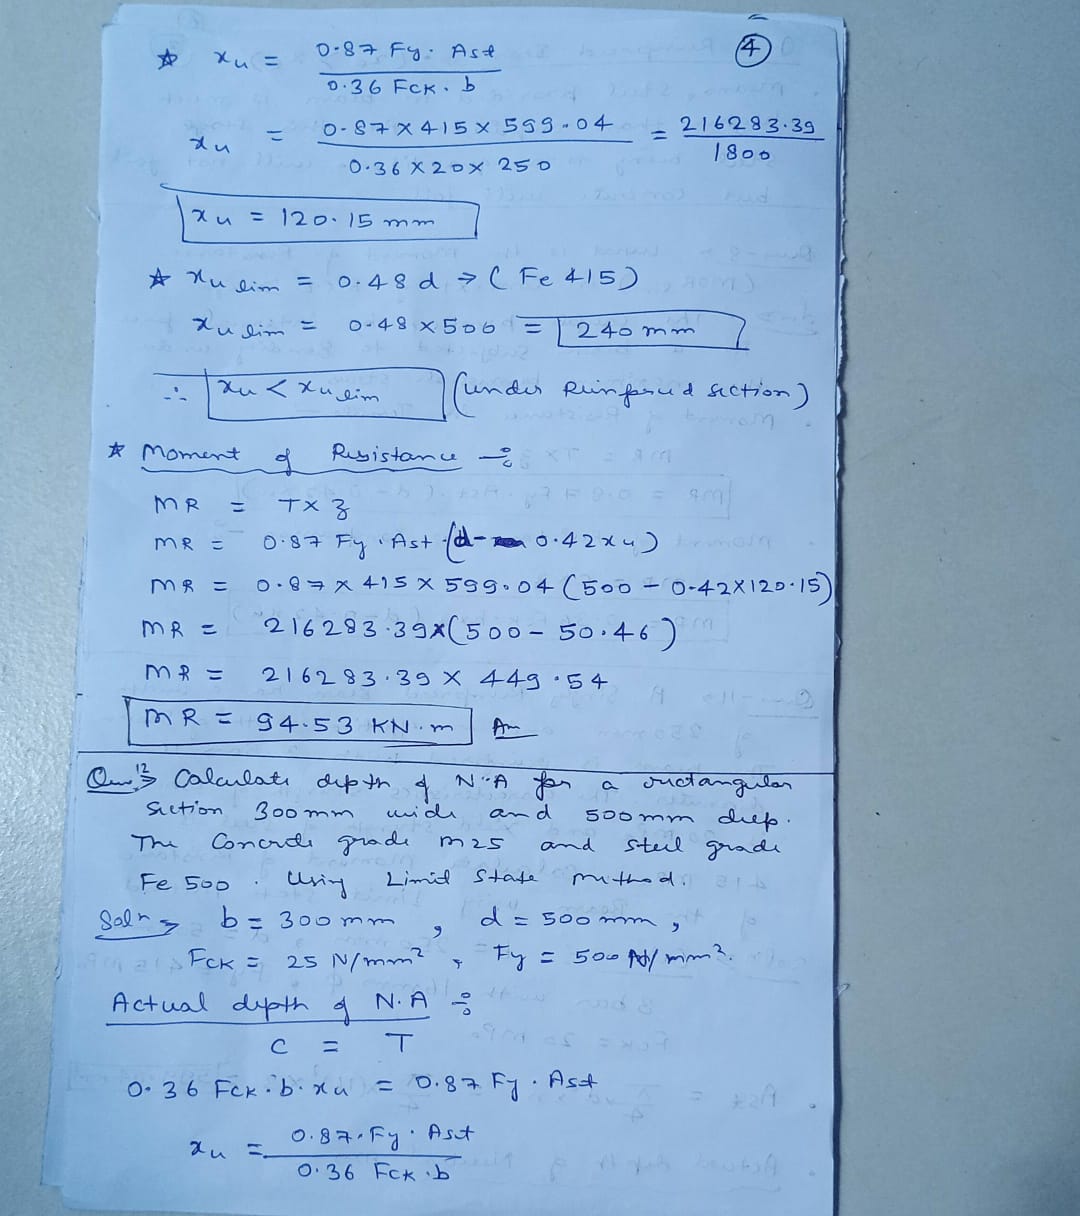 ④
☆ xu = 0.87 Fy. Ast / 0.36 Fck. b
xu = 0.87 x 415 x 599.04 / 0.36 x 20 x 250 = 216283.39 / 1800
xu = 120.15 mm
☆ xu lim = 0.48 d → ( Fe 415 )
xu lim = 0.48 x 500 = 240 mm
∴ xu < xu lim (under Reinforced section)
☆ Moment of Resistance :-
MR = T x z
MR = 0.87 Fy . Ast . (d - 0.42 xu)
MR = 0.87 x 415 x 599.04 (500 - 0.42 x 120.15)
MR = 216283.39 x (500 - 50.46)
MR = 216283.39 x 449.54
MR = 94.53 KN.m An
Que 12 → Calculate depth of N.A for a rectangular
section 300 mm wide and 500 mm deep.
The Concrete grade M25 and steel grade
Fe 500 . Using Limit State method.
Soln → b = 300 mm , d = 500 mm ,
Fck = 25 N/mm² , Fy = 500 N/mm².
Actual depth of N.A :-
C = T
0.36 Fck . b . xu = 0.87 Fy . Ast
xu = 0.87 . Fy . Ast / 0.36 Fck . b